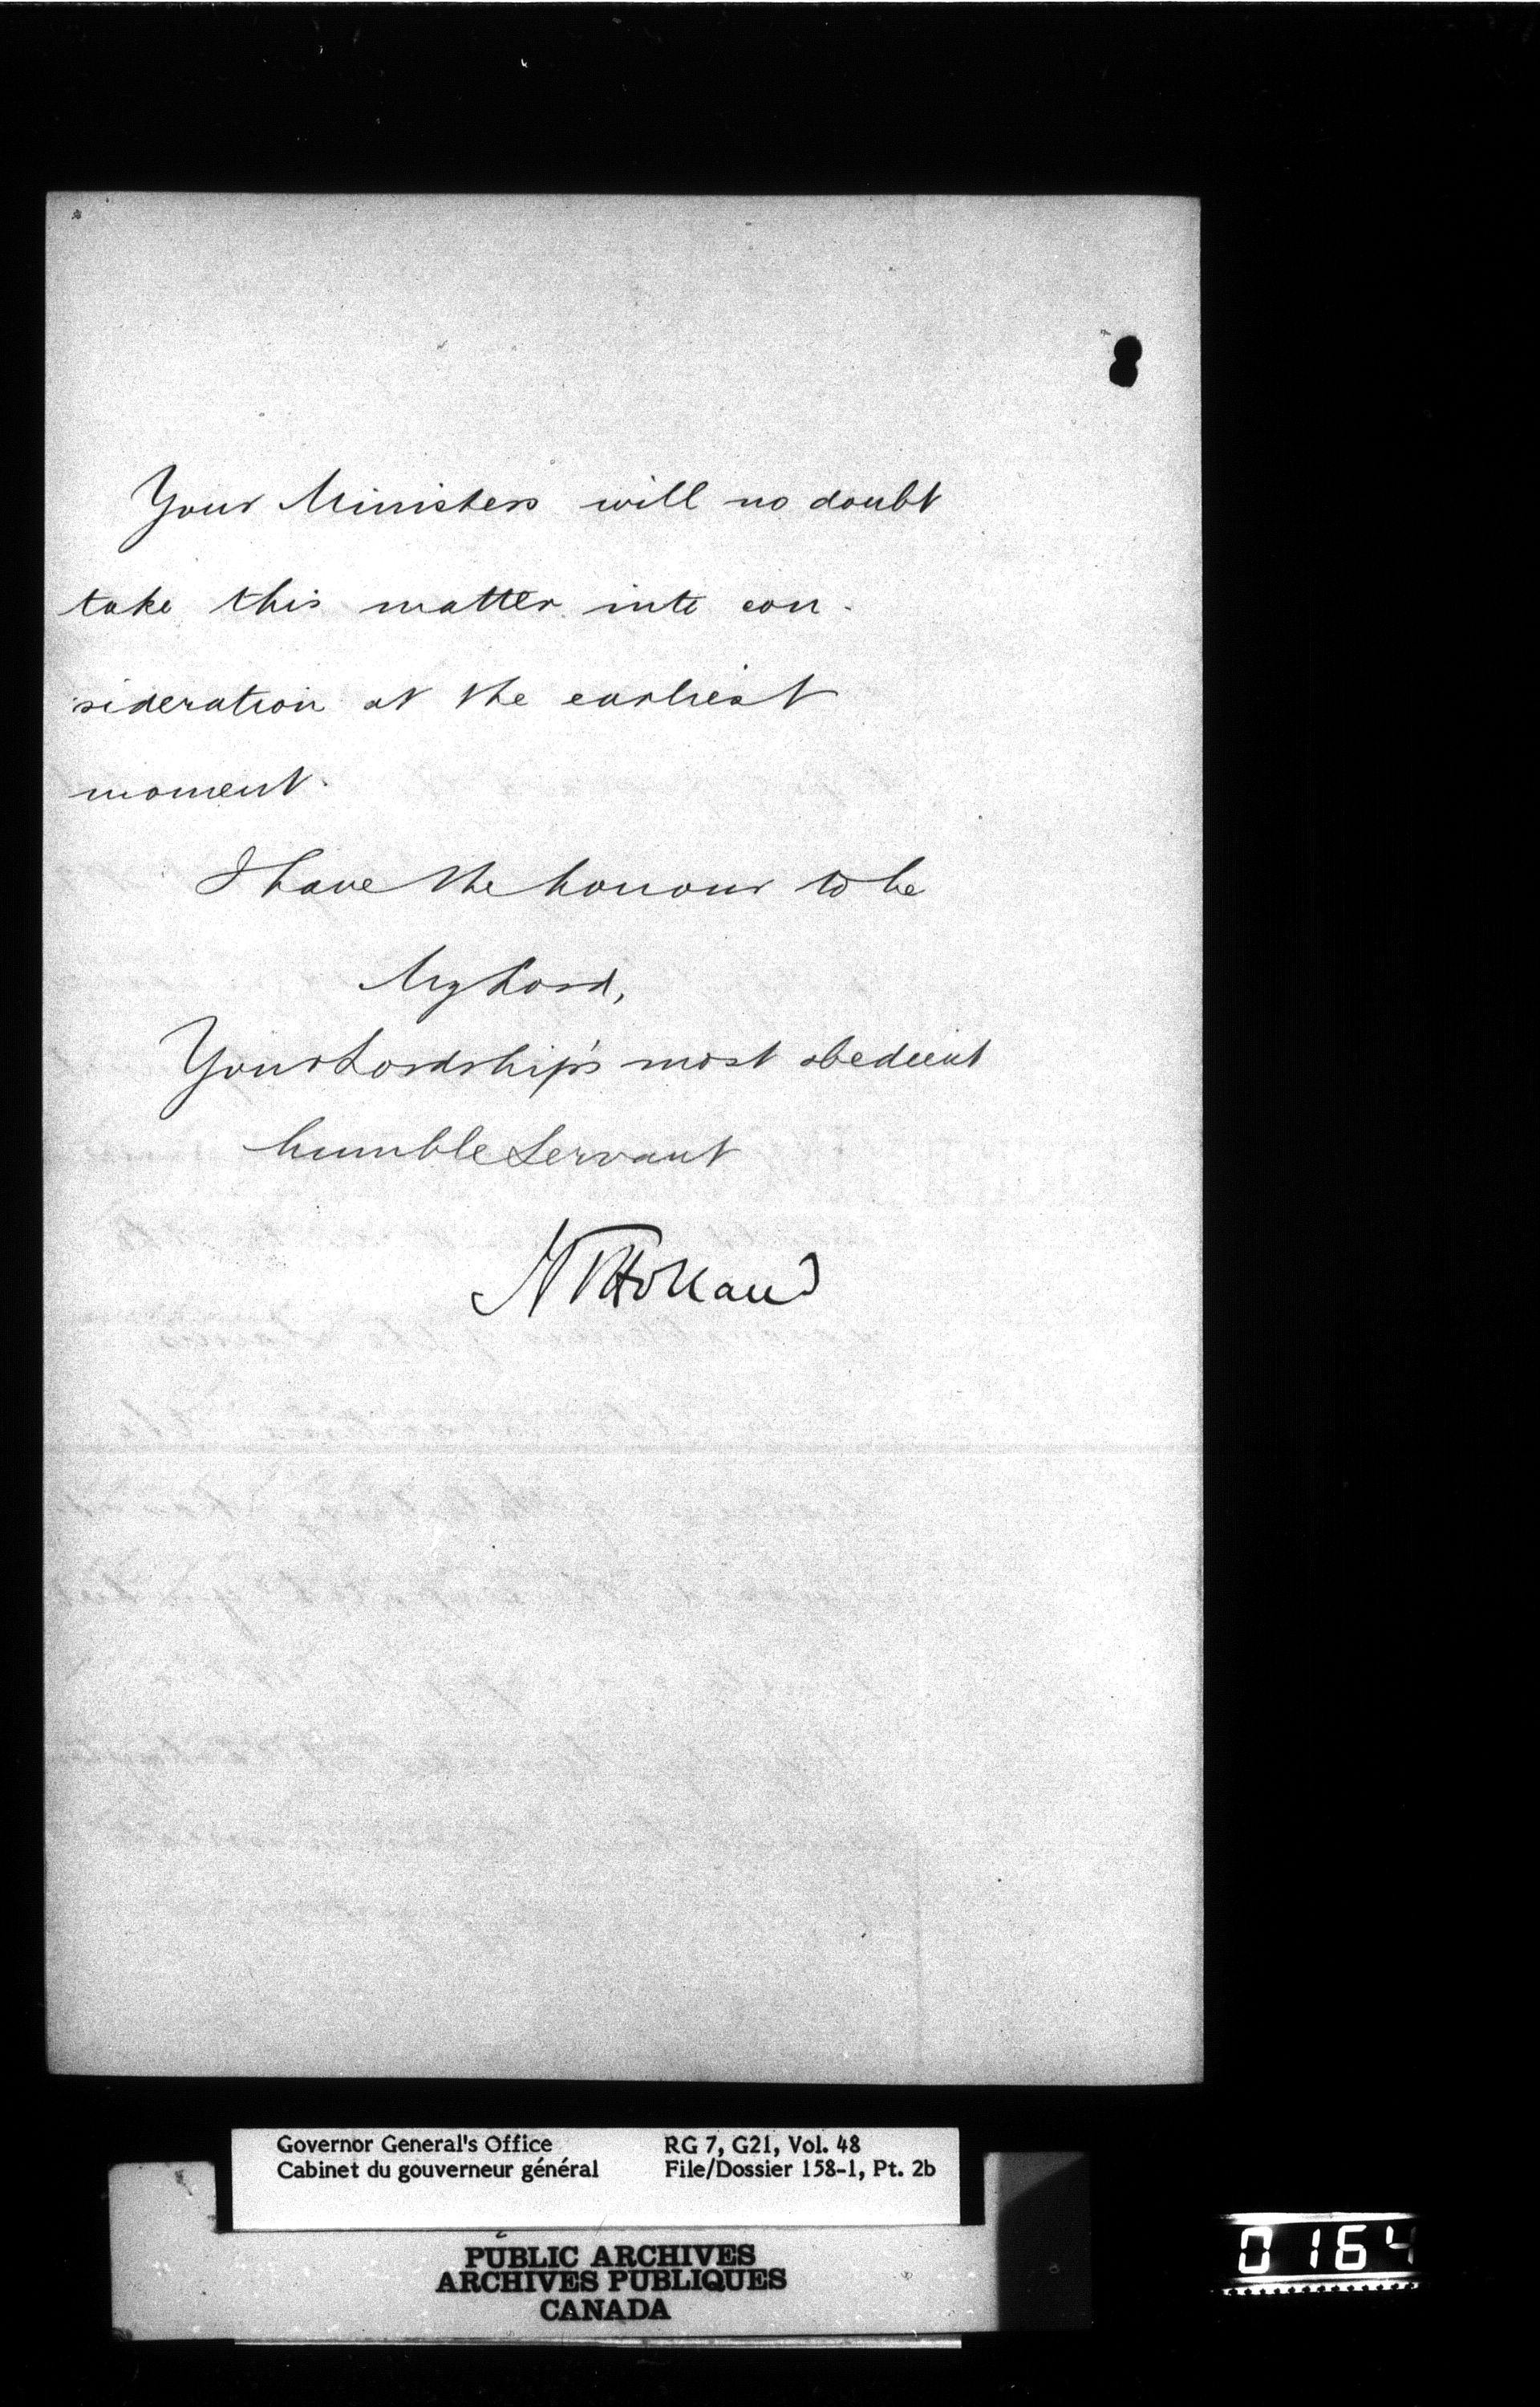 Your Ministers will no doubt
take this matter into con-
sideration at the earliest
moment.
I have the honour to be
My Lord,
Your Lordship's most obedient
humble Servant
HTHolland
Governor General's Office
Cabinet du gouverneur général
RG 7, G21, Vol. 48
File/Dossier 158-1, Pt. 2b
PUBLIC ARCHIVES
ARCHIVES PUBLIQUES
CANADA
0164